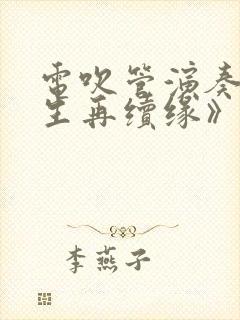 電吹管演奏
生再續缘》
李燕子